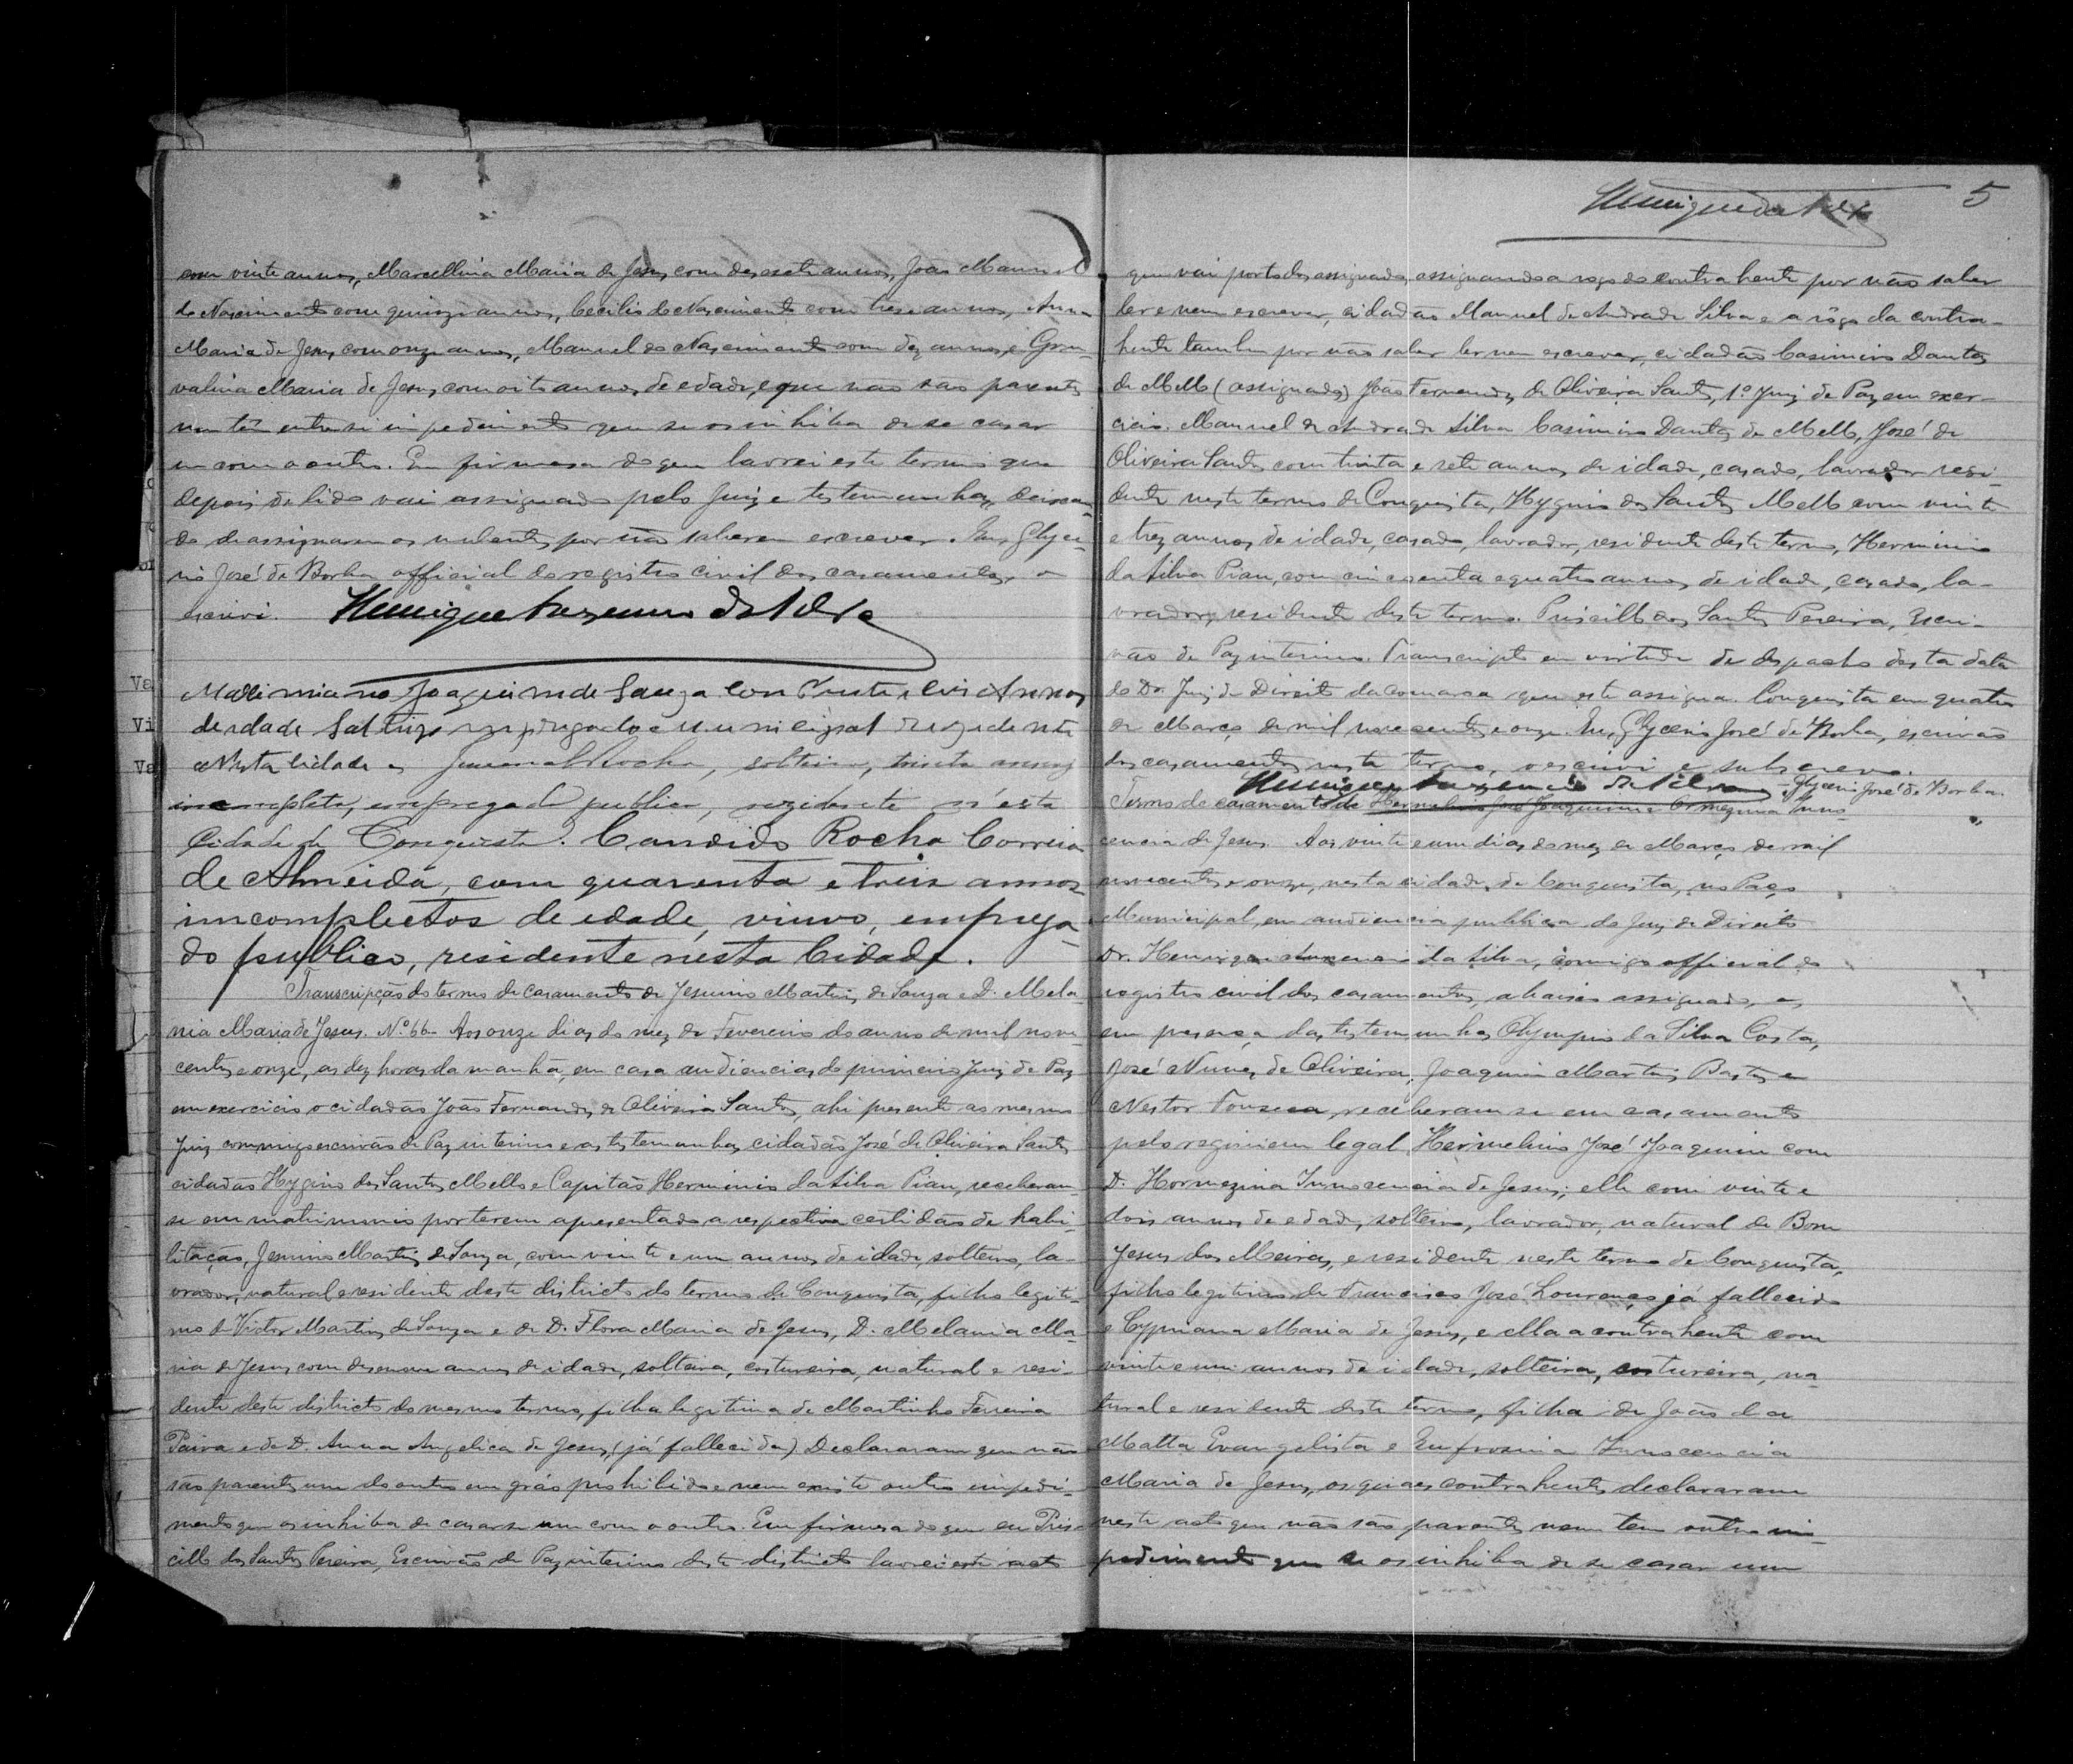 com vinte annos, Marcellina Maria de Jesus com desesete annos, João Manuel
do Nascimento com quinze annos, Cecilio do Nascimento com trese annos, Anna
Maria de Jesus com onze annos, Manuel do Nascimento com dez annos, e
valina Maria de Jesus, com oito annos, de edade, e que não são parentes
nem têm entre si impedimento que se os inhiba de se casar
um com o outro. Em firmesa do que lavrei este termo que
depois de lido vai assignado pelo Juiz e testemunhas, deixan-
do de assignarem os nubentes por não saberem escrever. Eu, Glyce-
rio José de Borba official do registro civil dos casamentos, o
escrevi. Henrique da Silva
Maximiano Joaquim de Souza Con Trinta e dois Annos
de idade Solteiro empregado municipal rezidente
Nesta Cidade e Juvenal Rocha, solteiro, trinta annos
incompletos, empregado publico, rezidente n'esta
Cidade de Conquista. Candido Rocha Correia
de Almeida, com quarenta e treis annos
imcomplectos de edade, viuvo, emprega-
do publico, residente nesta Cidade.
Transcripção do termo de casamento de Jesuino Martins de Souza e D. Mela-
nia Maria de Jesus. Nº 66- Aos onze dias do mez de Fevereiro do anno de mil nove
centos e onze, as dez horas da manhã, em casa audiencias do primeiro Juiz de Paz
em exercicio o cidadão João Fernandes de Oliveira Santos, ahi presente ao mesmo
Juiz commigo escrivão de Paz interino e as testemunhas, cidadão José de Oliveira Santos
cidadão Hygino dos Santos Mello e Capitão Herminio da Silva Pian, receberam-
se em matrimonio por terem apresentado a respectiva certidão de habi-
litação, Jesuino Martins de Souza, com vinte e um annos de idade, solteiro, la-
vrador, natural e residente deste districto do termo de Conquista, filho legiti-
mo de Victor Martins de Souza e de D. Flora Maria de Jesus, D. Melania Ma-
ria de Jesus, com desenove annos de idade, solteira, costureira, natural e resi-
dente deste districto do mesmo termo, filha legitima de Martinho Ferreira
Paiva e de D. Anna Angelica de Jesus, (já fallecida). Declararam que não
são parentes um do outro em gráo prohibido e nem existe outro impedi-
mento que os inhiba de casar-se um com o outro. Em firmesa do que eu Pris-
cillo dos Santos Pereira, Escrivão de Paz interino deste districto lavrei este acto
5
Henrique da Silva
que vai por todos assignado, assignando a rogo do contrahente por não saber
ler e nem escrever, cidadão Manuel de Andrade Silva e a rôgo da contra-
hente tambem por não saber ler nem escrever, cidadão Casimiro Dantas
de Mello (assignados) João Fernandes de Oliveira Santos, 1º Juiz de Paz em exer-
cicio. Manuel de Andrade Silva Casimiro Dantas de Mello, José de
Oliveira Santos com trinta e sete annos de idade, casado, lavrador resi-
dente neste termo de Conquista, Hygino dos Santos Mello com vinte
e trez annos de idade, casado, lavrador, residente deste termo, Herminio
da Silva Pian, com cincoenta e quatro annos de idade, casado, la-
vrador, residente deste termo. Priscillo dos Santos Pereira, Escri-
vão de Paz interino. Transcripto em virtude de despacho desta data
do Dr. Juiz de Direito da comarca que este assigna. Conquista em quatro
de Março de mil novecentos e onze. Eu, Glycerio José de Borba, escrivão
dos casamentos neste termo, o escrevi e subscrevo.
Henrique da Silva Glycerio José de Borba
Termo de casamento de Hermelino José Joaquim e Ormezina Inno-
cencia de Jesus. Aos vinte e um dias do mez de Março de mil
novecentos e onze, nesta cidade de Conquista, no Paço
Municipal, em audiencia publica do Juiz de Direito
Dr. Henrique da Silva, comigo official do
registro civil dos casamentos, abaixo assignado, e
em presença das testemunhas Olympio da Silva Costa,
José Nunes de Oliveira, Joaquim Martins Bastos e
Nestor Fonseca, receberam-se em casamento
pelo regimem legal Hermelino José Joaquim com
D. Hormezina Innocencia de Jesus; elle com vinte e
dois annos de edade, solteiro, lavrador, natural de Bom
Jesus dos Meiras, e residente neste termo de Conquista,
filho legitimo de Francisco José Lourenço já fallecido
e Cypriana Maria de Jesus, e ella a contrahente com
vinte e um annos de idade, solteira, costureira, na-
tural e residente deste termo, filha de João da
Matta Evangelista e Eufrosina Innocencia
Maria de Jesus, os quaes contrahentes declararam
neste acto que não são parentes nem tem outro im-
pedimento que se os inhiba de se casar um